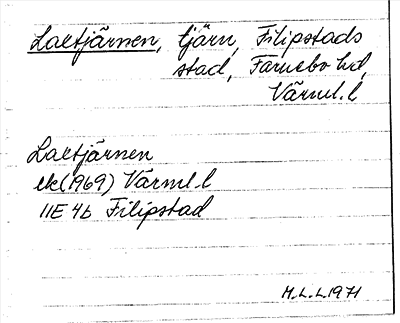 Laxtjärnen, tjärn, Filipstads
stad, Färnebo hd,
Värml. l
Laxtjärnen
ek (1969) Värml. l
11E 4b Filipstad
M.L.L. 1971